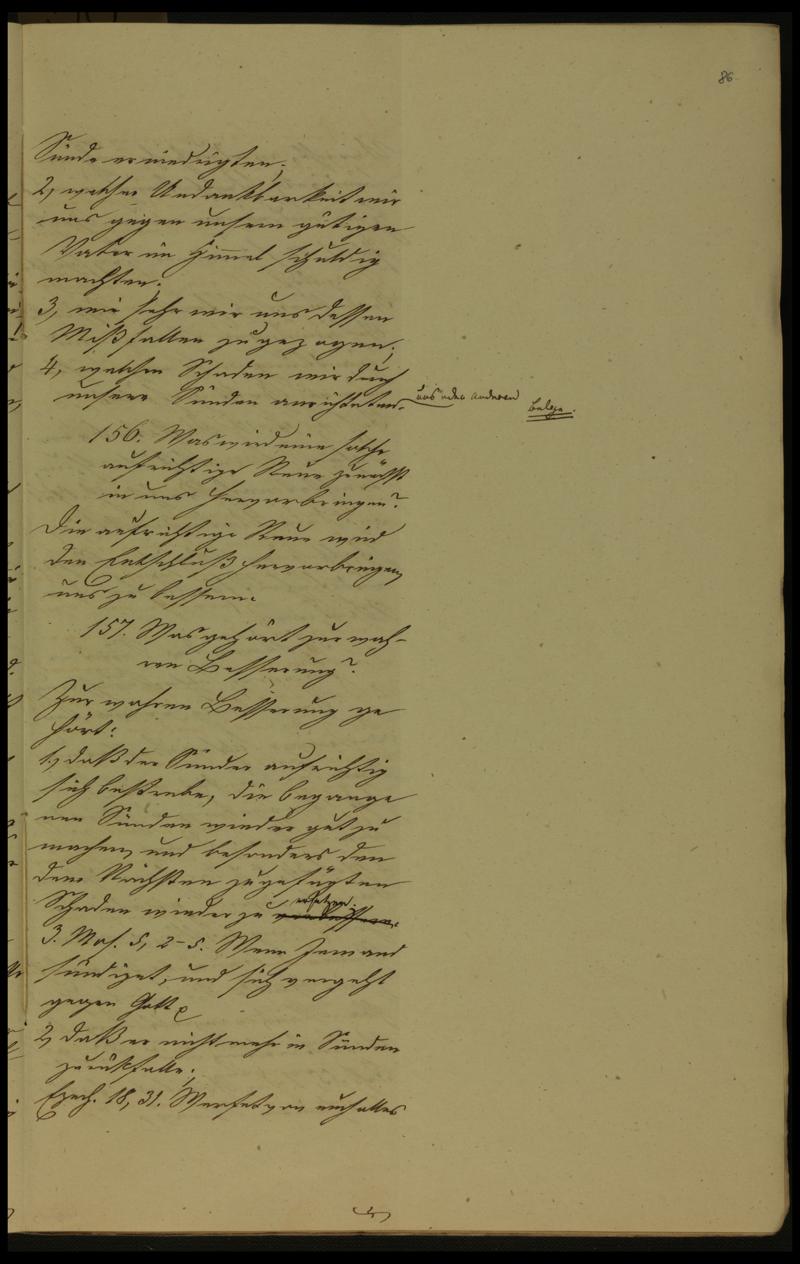 86.
Sünde erniedrigten;
2, welcher Undankbarkeit wir
uns gegen unsern gütigen
Vater im Himmel schuldig
machten;
3, wie sehr wir uns dessen
Mißfallen zugezogen;
4, welchen Schaden wir durch
unsere Sünden anrichteten.
uns oder anderen
156. Was wird eine solche
aufrichtige Reue zunächst
in uns hervorbringen?
Die aufrichtige Reue wird
den Entschluß hervorbringen,
uns zu bessern.
157. Was gehört zur wah-
ren Besserung?
Zur wahren Besserung ge
hört:
1, daß der Sünder aufrichtig
sich bestrebe, die begange
nen Sünden wieder gut zu
machen, und besonders den
dem Nächsten zugefügten
Schaden wieder zu ersetzen.
3. Mos. 5, 2-5. Wenn Jemand
sündiget, und sich vergeht
gegen Gott
2, daß er nicht mehr in Sünden
zurückfalle;
Ezech. 18, 31. Werfet von euch alles